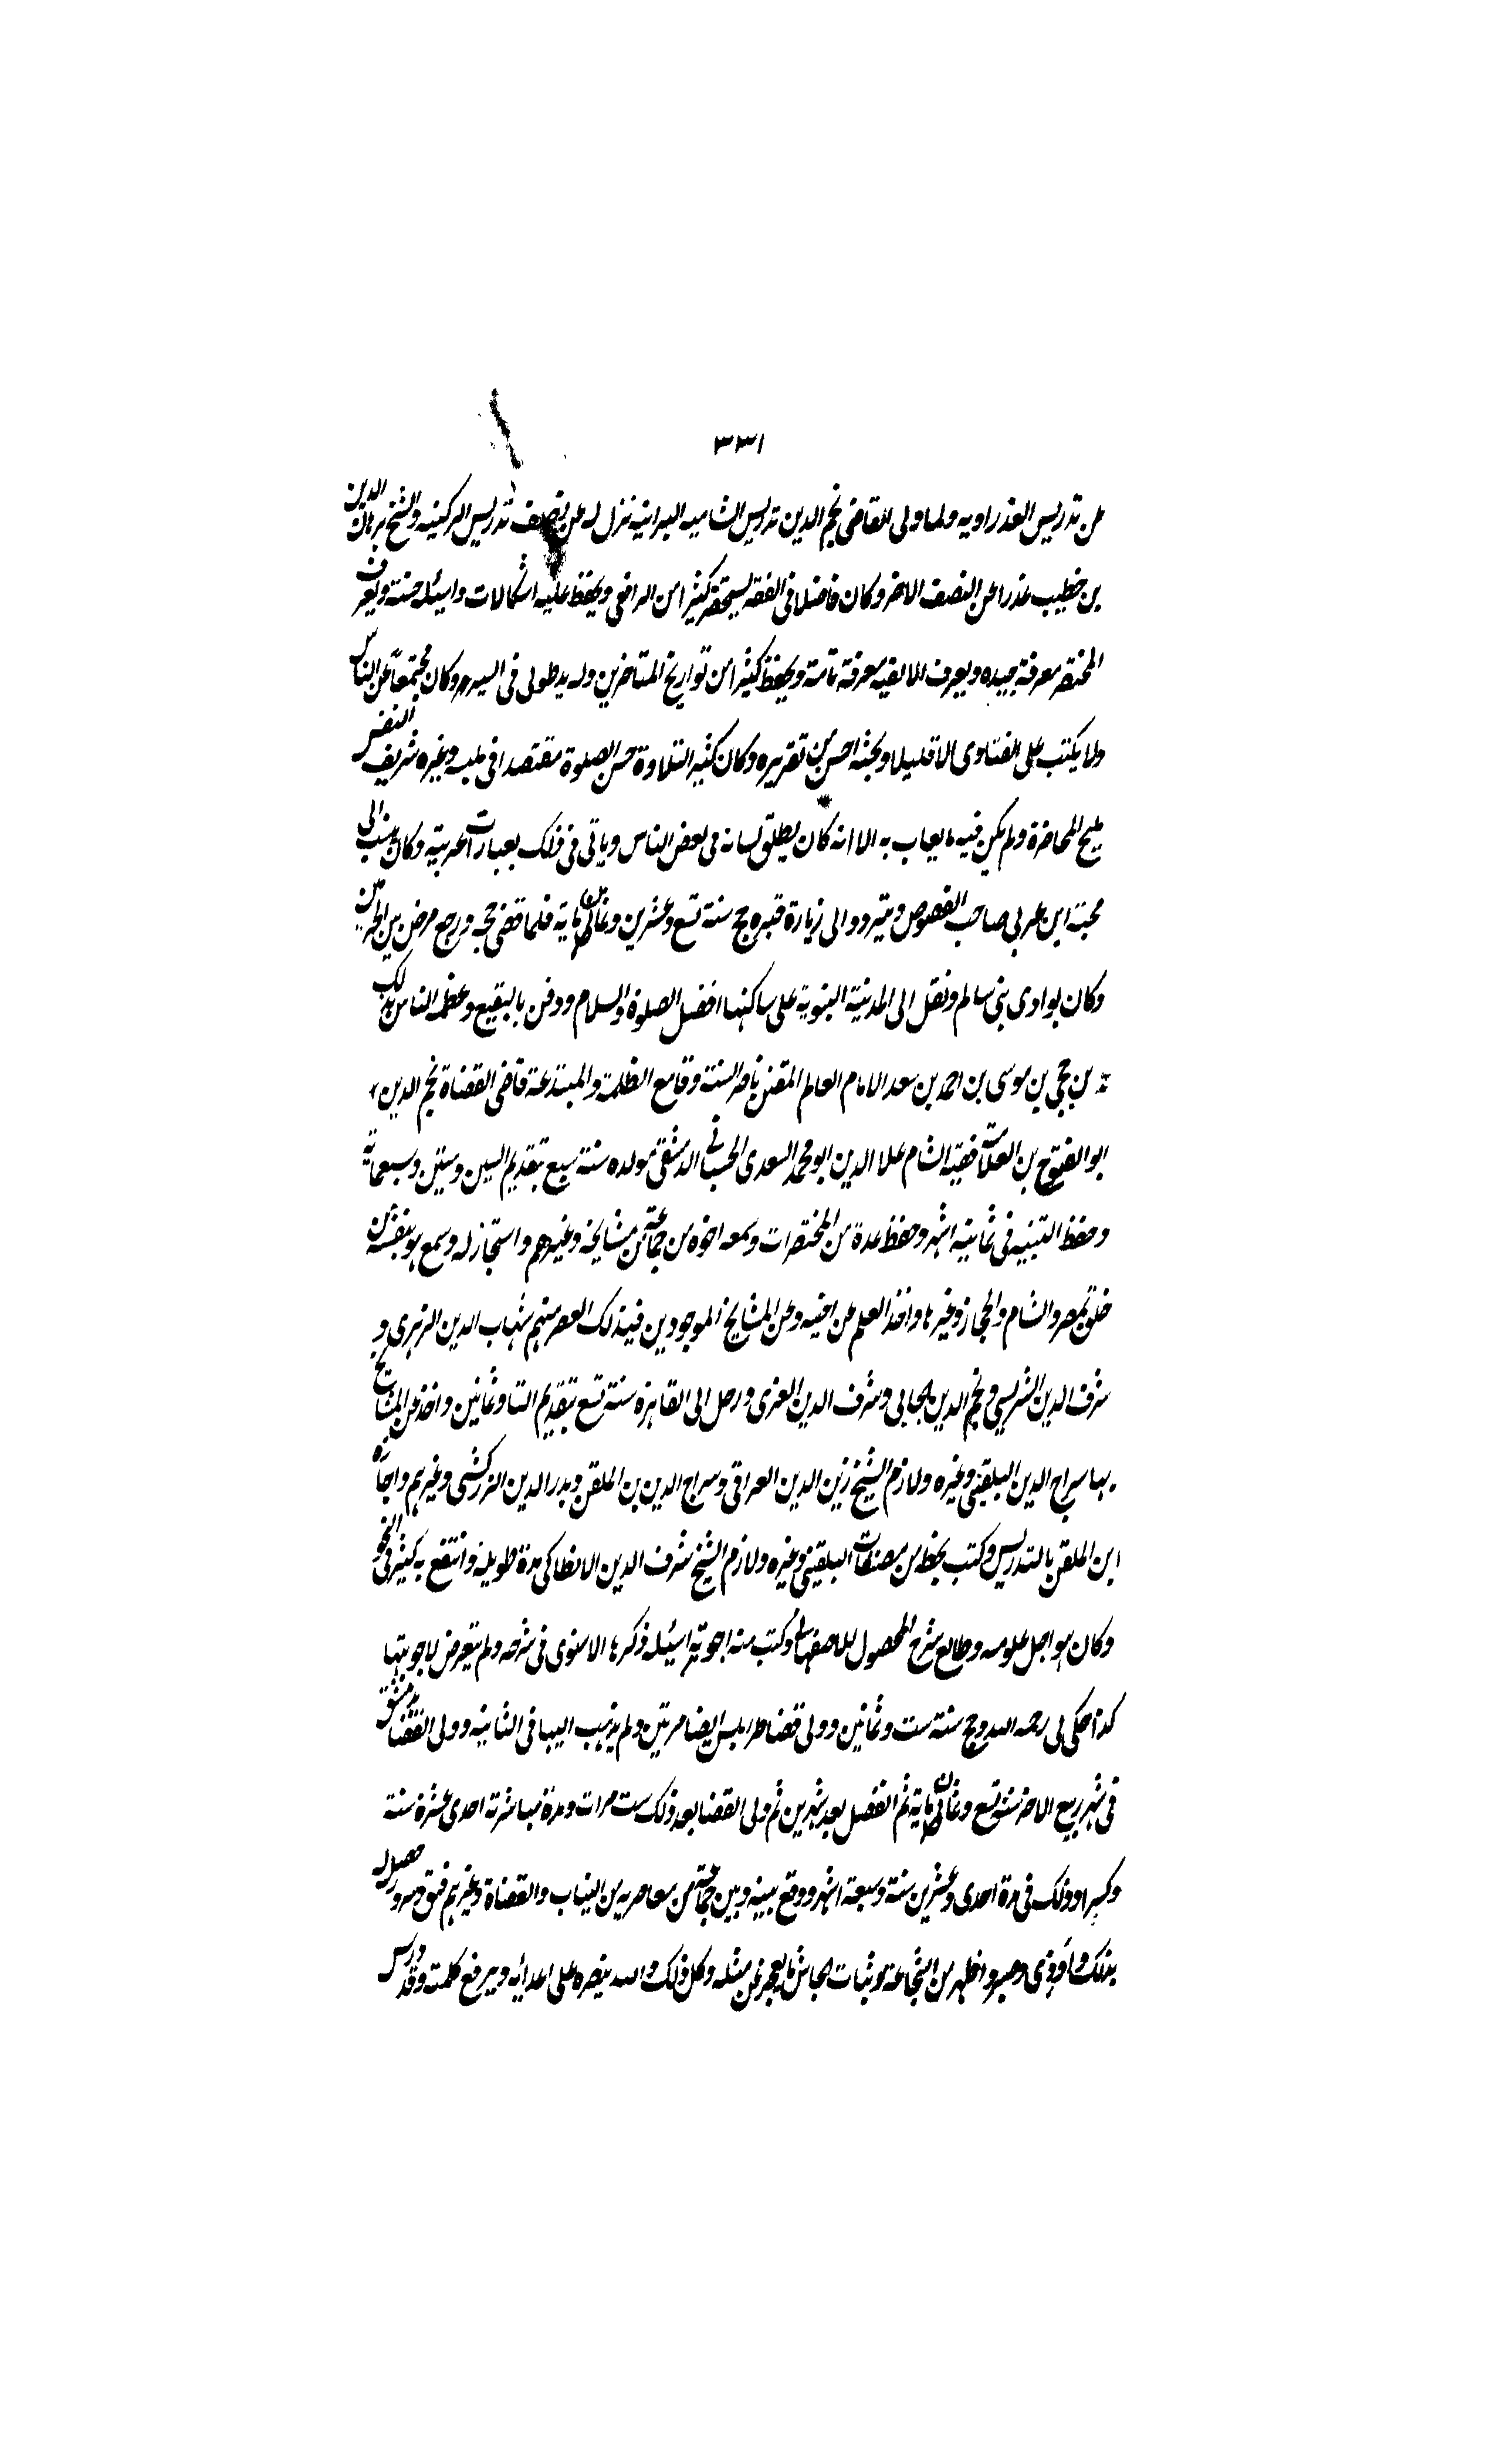 ٣٣١
عن تدريس العذراويه ولما ولى القاضى نجم الدين تدريس الشاميه البرانيه نزل له عن نصف تدريس الركنيه والشيخ برهان الدين
بن خطيب عذرا عن النصف الاخر وكان فاضلا فى الفقه يستحضر كثيرا من الرافعى ويحفظ عليه اشكالات واسئله حسنة ويعرف
المختصر معرفة جيده ويعرف الالفيه معرفة تامة ويحفظ كثيرا من تواريخ المتاخرين وله يد طولى فى السير وكان مجتمعا عن الناس
ولا يكتب على الفتاوى الا قليلا وبحثه احسن من تقريره وكان كثير التلاوة حسن الصلوة مقتصدا فى ملبسه وغيره شريف النفس
مليح المحاضرة ولم يكن فيه ما يعاب به الا انه كان يطلق لسانه فى بعض الناس وياتى فى ذلك بعبارات غريبة وكان ينسب الى
محبة ابن عربى صاحب الفصوص ويتردد الى زيارة قبره حج سنة تسع وعشرين وثمان ماية فلما قضى حجه ورجع مرض بين الحرمين
وكان بوادى بنى سالم ونقل الى المدينة النبوية على ساكنها افضل الصلوة والسلام ودفن بالبقيع وغطه الناس بذلك
بن حجى بن موسى بن احمد بن سعد الامام العالم المفنن ناصر السنة وقامع الظلمة والمبتدعة قاضى القضاة نجم الدين
ابو الفتوح بن العلامة فقيه الشام علا الدين ابو محمد السعدى الحسبانى الدمشقى مولده سنة سبع بتقديم السين وستين وسبعماية
وحفظ التنبيه فى ثمانيه اشهر وحفظ عدة من المختصرات وسمعه اخوه من جماعة من مشايخه وغيرهم واستجاز له وسمع هو بنفسه من
خلق بمصر والشام والحجاز وغيرها واخذ العلم عن اخيه وعن المشايخ الموجودين فى ذلك العصر منهم شهاب الدين الزهرى و
شرف الدين الشريسى ونجم الدين الجابى وشرف الدين الغزى ورحل الى القاهرة سنة تسع بتقديم التا وثمانين واخذ عن المشايخ
بها سراج الدين البلقينى وغيره ولازم الشيخ زين الدين العراقى وسراج الدين بن الملقن وبدر الدين الزركشى وغيرهم واجازه
ابن الملقن بالتدريس وكتب بخطه من مصنفات البلقينى وغيره ولازم الشيخ شرف الدين الانطاكى مدة طويلة وانتفع به كثيرا فى النحو
وكان هو اجل علومه وطالع شرح المحصول للاصفهانى وكتب منه اجوبة اسئله ذكرها الاسنوى فى شرحه ولم يتعرض لاجوبتها
كذا حكى لى رحمه الله وحج سنة ست وثمانين وولى قضا طرابلس ايضا مرتين ولم يذهب اليها فى الثانيه وولى القضا بدمشق
فى شهر ربيع الاخر سنة تسع وثمان ماية ثم انفصل بعد شهرين ثم ولى القضا بعد ذلك ست مرات ومدة مباشرته احدى عشرة سنة
وكسرا وذلك فى مدة احدى وعشرين سنة وسبعة اشهر ووقع بينه وبين جماعة من معاصريه من النياب والقضاة وغيرهم فتن وسرور حصل له
بذلك واوذى وصبر واظهر من الشجاعة وثبات الجاش ما يعجز عن مثله وكل ذلك والله ينصره على اعدائه ويرفع كلمته وقد درس